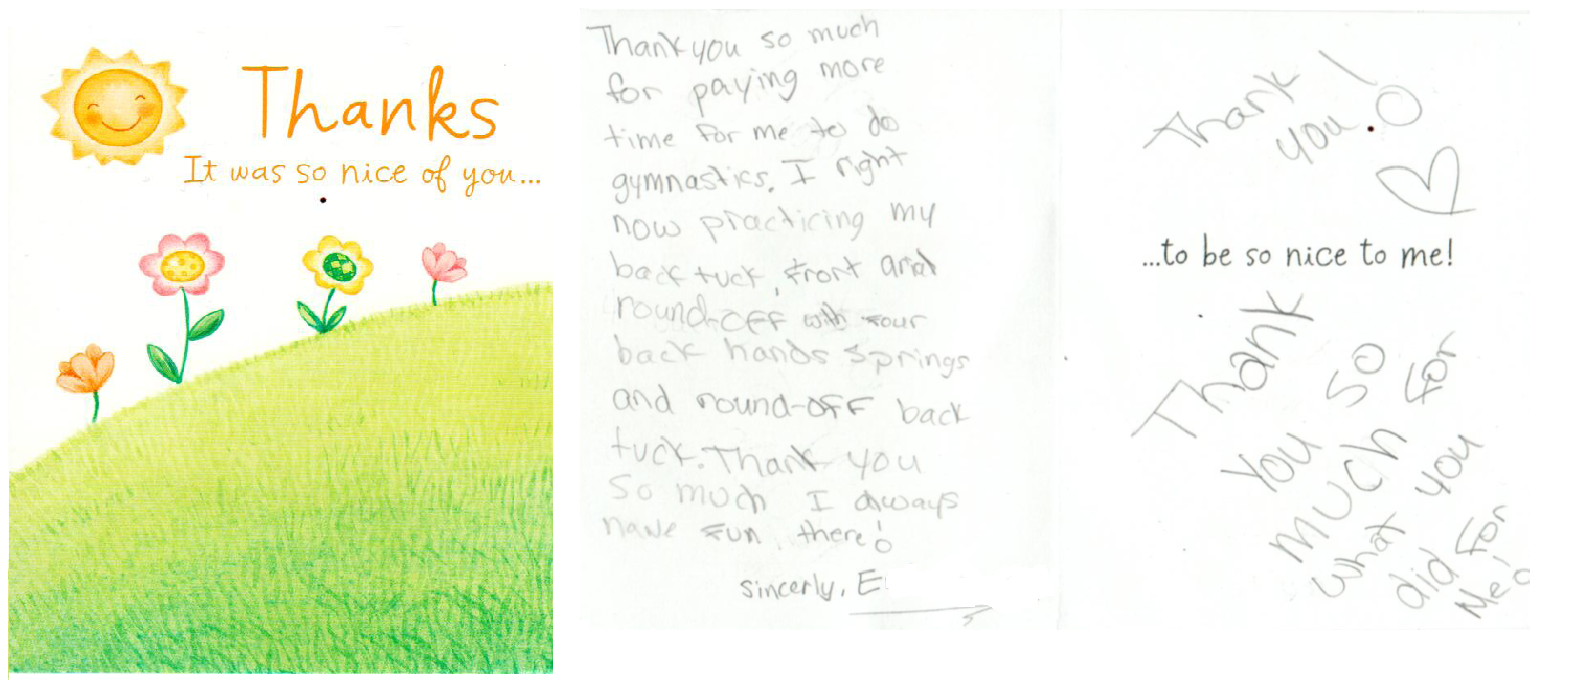 Thanks
It was so nice of you...
Thank you so much
for paying more
time for me to do
gymnastics. I right
now practicing my
back tuck, front and
round-off with four
back hands springs
and round-off back
tuck. Thank you
so much I always
have fun there!
sincerly, E
Thank
you!
...to be so nice to me!
Thank
You so
much for
what you
did for
me!